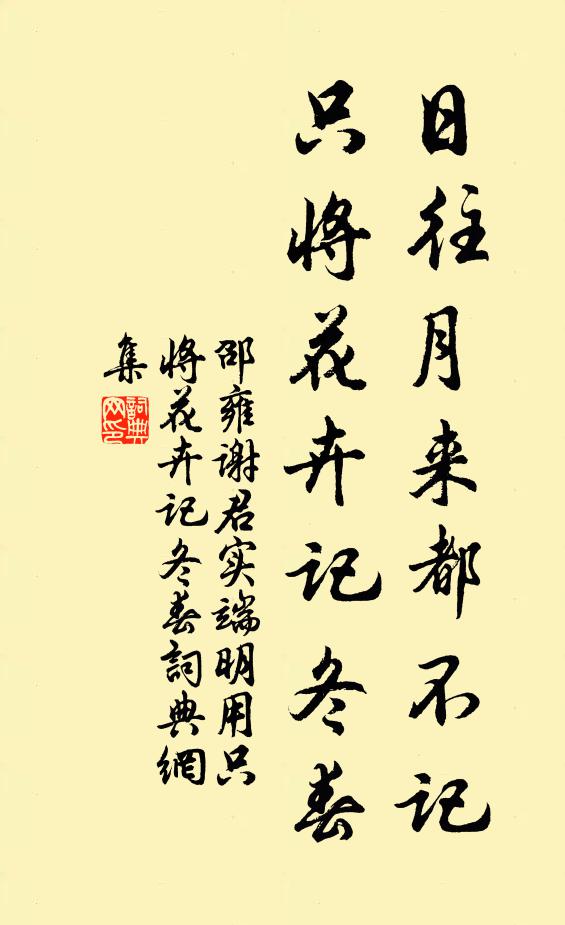 日往月来都不记
只将花卉记冬春
邵雍谢君实端明用只
将花卉记冬春詞典網
集
詞典
网印